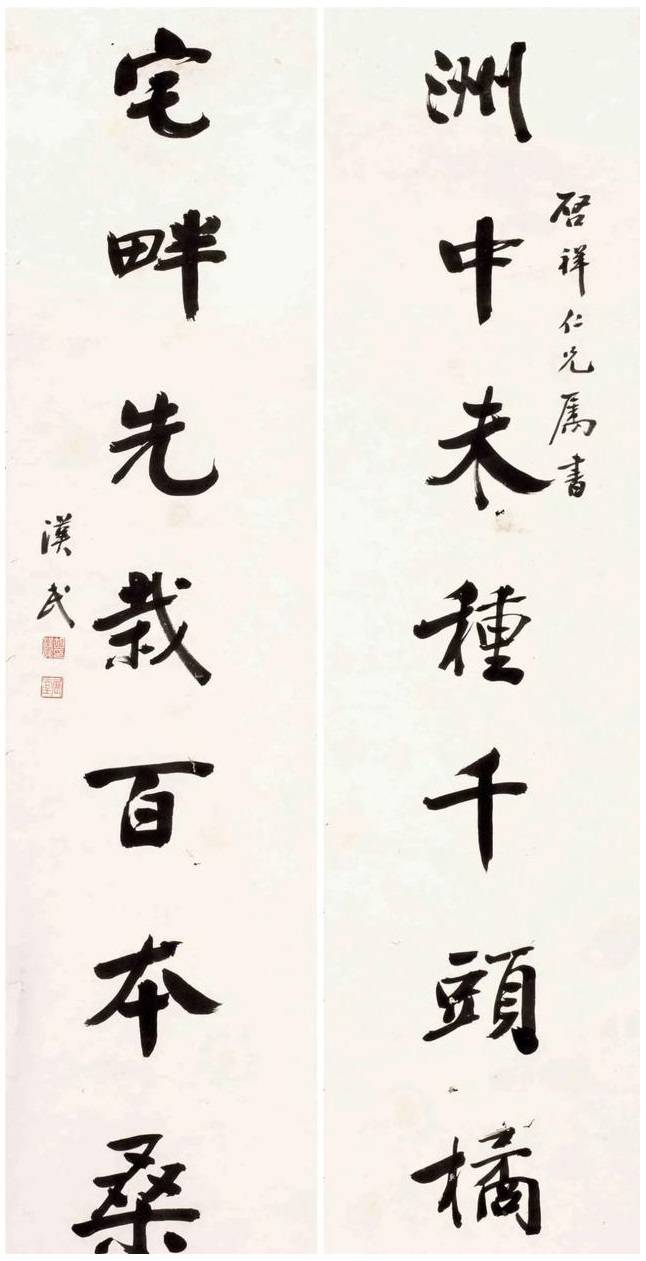 啓祥仁兄属書
洲中未種千頭橘
宅畔先栽百本桑
漢民